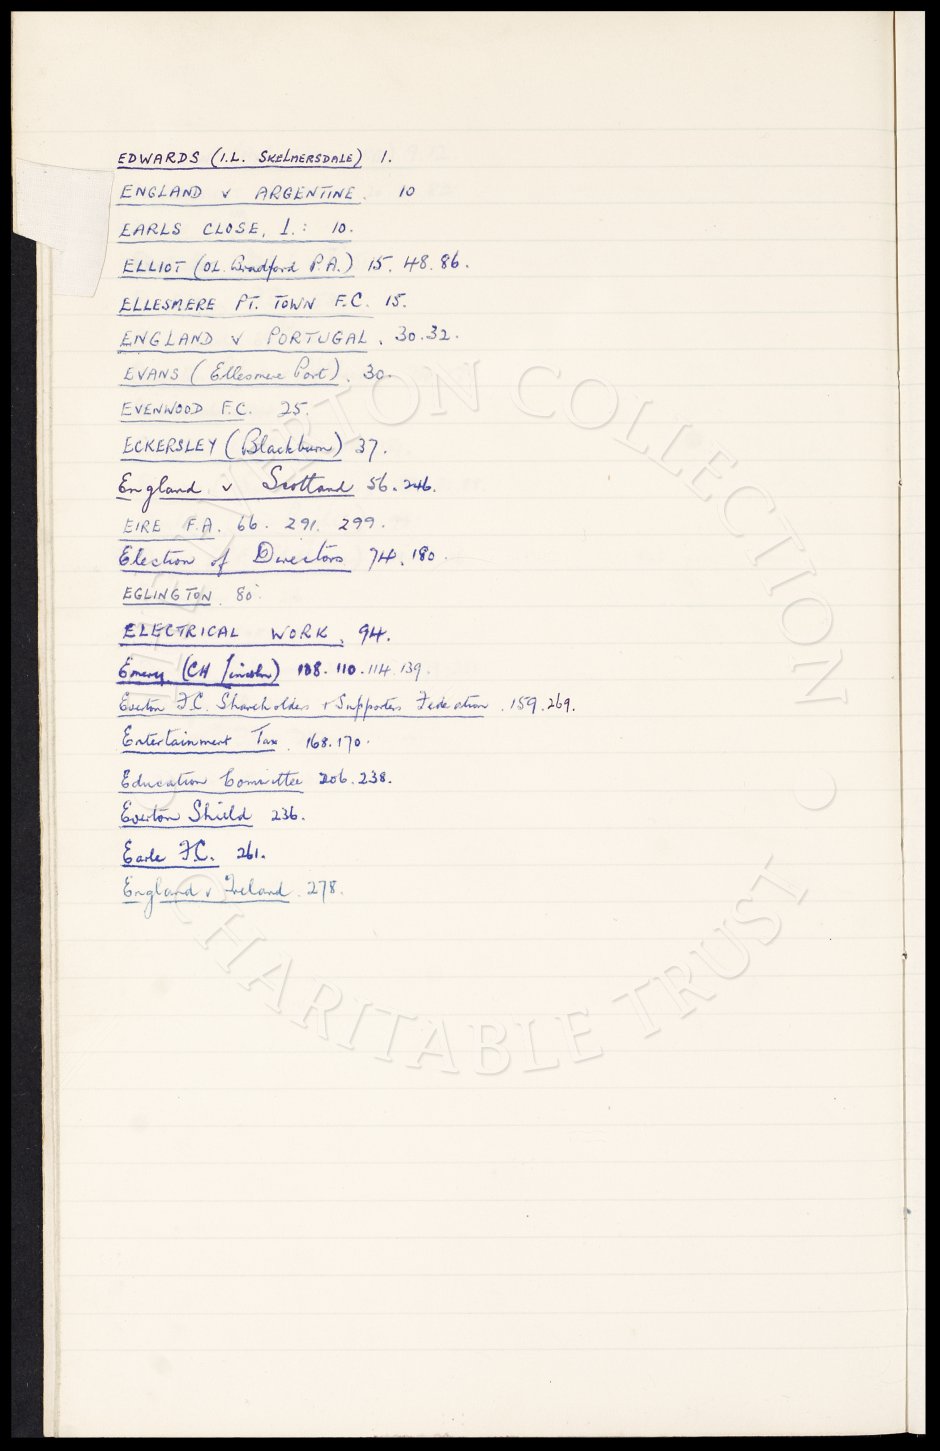 EDWARDS (I.L. SKELMERSDALE) 1.
ENGLAND v ARGENTINE. 10
EARLS CLOSE, 1.: 10.
ELLIOT (OL. Bradford P.A.) 15. 48. 86.
ELLESMERE PT. TOWN F.C. 15.
ENGLAND v PORTUGAL. 30.32.
EVANS (Ellesmere Port). 30.
EVENWOOD F.C. 25.
ECKERSLEY (Blackburn) 37.
England v Scotland 56. 246.
EIRE F.A. 66. 291. 299.
Election of Directors 74. 180.
EGLINGTON. 80.
ELECTRICAL WORK. 94.
Emery (CH Lincoln) 108. 110. 114. 139.
Everton F.C. Shareholders & Supporters Federation. 159. 269.
Entertainment Tax. 168. 170.
Education Committee 206. 238.
Everton Shield 236.
Earle F.C. 261.
England v Ireland. 278.
THE EVERTON COLLECTION
CHARITABLE TRUST